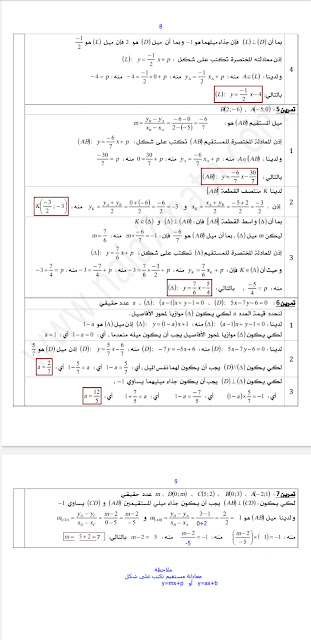 8
بما أن (L)⊥(D) فإن جداء ميليهما هو 1− و بما أن ميل (D) هو 2 فإن ميل (L) هو -1/2
إذن معادلته المختصرة تكتب على شكل : (L): y = -1/2 x + p
4
ولدينا : A∈(L) منه : y_A = -1/2 x_A + p منه : -4 = -1/2 × 0 + p منه : p = -4
بالتالي: (L): y = -1/2 x - 4
تمرين 5: A(-5;0) ، B(2;-6)
ميل المستقيم (AB) هو : m = (y_B - y_A)/(x_B - x_A) = (-6-0)/(2-(-5)) = -6/7
إذن المعادلة المختصرة للمستقيم (AB) تكتب على شكل : (AB): y = -6/7 x + p
1
ولدينا : A∈(AB) منه : y_A = -6/7 x_A + p منه : 0 = 30/7 + p منه : p = -30/7
بالتالي: (AB): y = -6/7 x - 30/7
لدينا K منتصف القطعة [AB]
2
إذن : x_K = (x_A + x_B)/2 = (-5+2)/2 = -3/2 و y_K = (y_A + y_B)/2 = (0+(-6))/2 = -6/2 = -3 منه : K(-3/2 ; -3)
بما أن (Δ) واسط القطعة [AB] فإن : (AB)⊥(Δ) و K∈(Δ)
ليكن m ميل (Δ) ، بما أن ميل (AB) هو -6/7 فإن : m × -6/7 = -1 منه : m = 7/6
3
إذن المعادلة المختصرة للمستقيم (Δ) تكتب على شكل : (Δ): y = 7/6 x + p
و حيث أن K∈(Δ) فإن : y_K = 7/6 x_K + p منه : -3 = 7/6 × -3/2 + p منه : -3 = -7/4 + p منه : -3 + 7/4 = p
منه : -5/4 = p ، بالتالي : (Δ): y = 7/6 x - 5/4
تمرين 6: (D): 5x-7y-6=0 ، (Δ): (a-1)x+y-1=0 ، a عدد حقيقي
لنحدد قيمة العدد a لكي يكون (Δ) موازيا لمحور الأفاصيل.
1
لدينا : (Δ): (a-1)x+y-1=0 منه : (Δ): y=(1-a)x+1 إذن ميل (Δ) هو 1-a
لكي يكون (Δ) موازيا لمحور الأفاصيل يجب أن يكون ميله منعدما، أي : 1-a=0 أي : a=1
لدينا : (D): 5x-7y-6=0 منه : (D): -7y=-5x+6 منه : (D): y = 5/7 x - 6/7 إذن ميل (D) هو 5/7
2
لكي يكون (D)//(Δ) يجب أن يكون لهما نفس الميل، أي : 1-a = 5/7 أي : 1 - 5/7 = a أي : a = 2/7
لكي يكون (D)⊥(Δ) يجب أن يكون جداء ميليهما يساوي 1− ،
3
أي : (1-a) × 5/7 = -1 أي : 1-a = -7/5 أي : 1 + 7/5 = a أي : a = 12/5
9
تمرين 7: A(-2;1) ، B(0;3) ، C(5;2) ، D(0;m) ، m عدد حقيقي
لكي يكون : (AB)⊥(CD) يجب أن يكون جداء ميلي المستقيمين (AB) و (CD) يساوي 1−
ولدينا ميل (AB) هو m_(AB) = (y_B - y_A)/(x_B - x_A) = (3-1)/(0+2) = 2/2 = 1 و m_(CD) = (y_D - y_C)/(x_D - x_C) = (m-2)/(0-5) = (m-2)/-5
منه : ((m-2)/-5) × (1) = -1 منه : (m-2)/-5 = -1 منه : m-2 = 5 بالتالي: m = 5+2 = 7
ملاحظة
معادلة مستقيم تكتب على شكل
y=ax+b أو y=mx+p